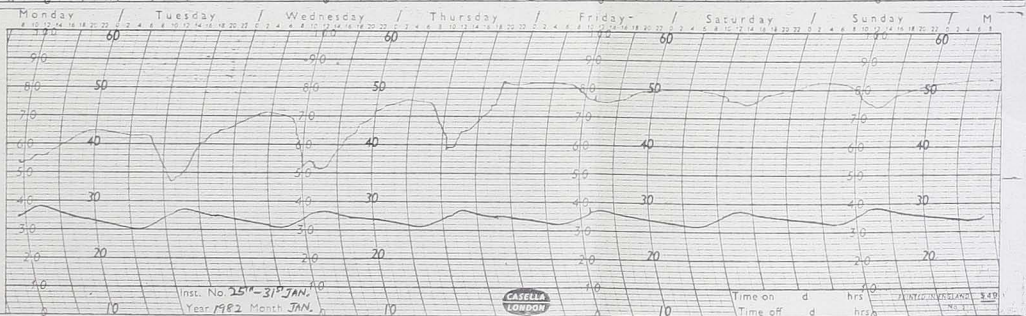 Monday / Tuesday / Wednesday / Thursday / Friday / Saturday / Sunday / M
60 60 60 60
90 90 90 90
50 50 50 50
80 80 80 80
70 70 70 70
40 40 40 40
60 60 60 60
50 50 50 50
30 30 30 30
40 40 40 40
30 30 30 30
20 20 20 20
20 20 20 20
10 10 10 10
Inst. No. 25TH-31ST JAN.
Year 1982 Month JAN.
CASELLA
LONDON
Time on d hrs
Time off d hrs
PRINTED IN ENGLAND